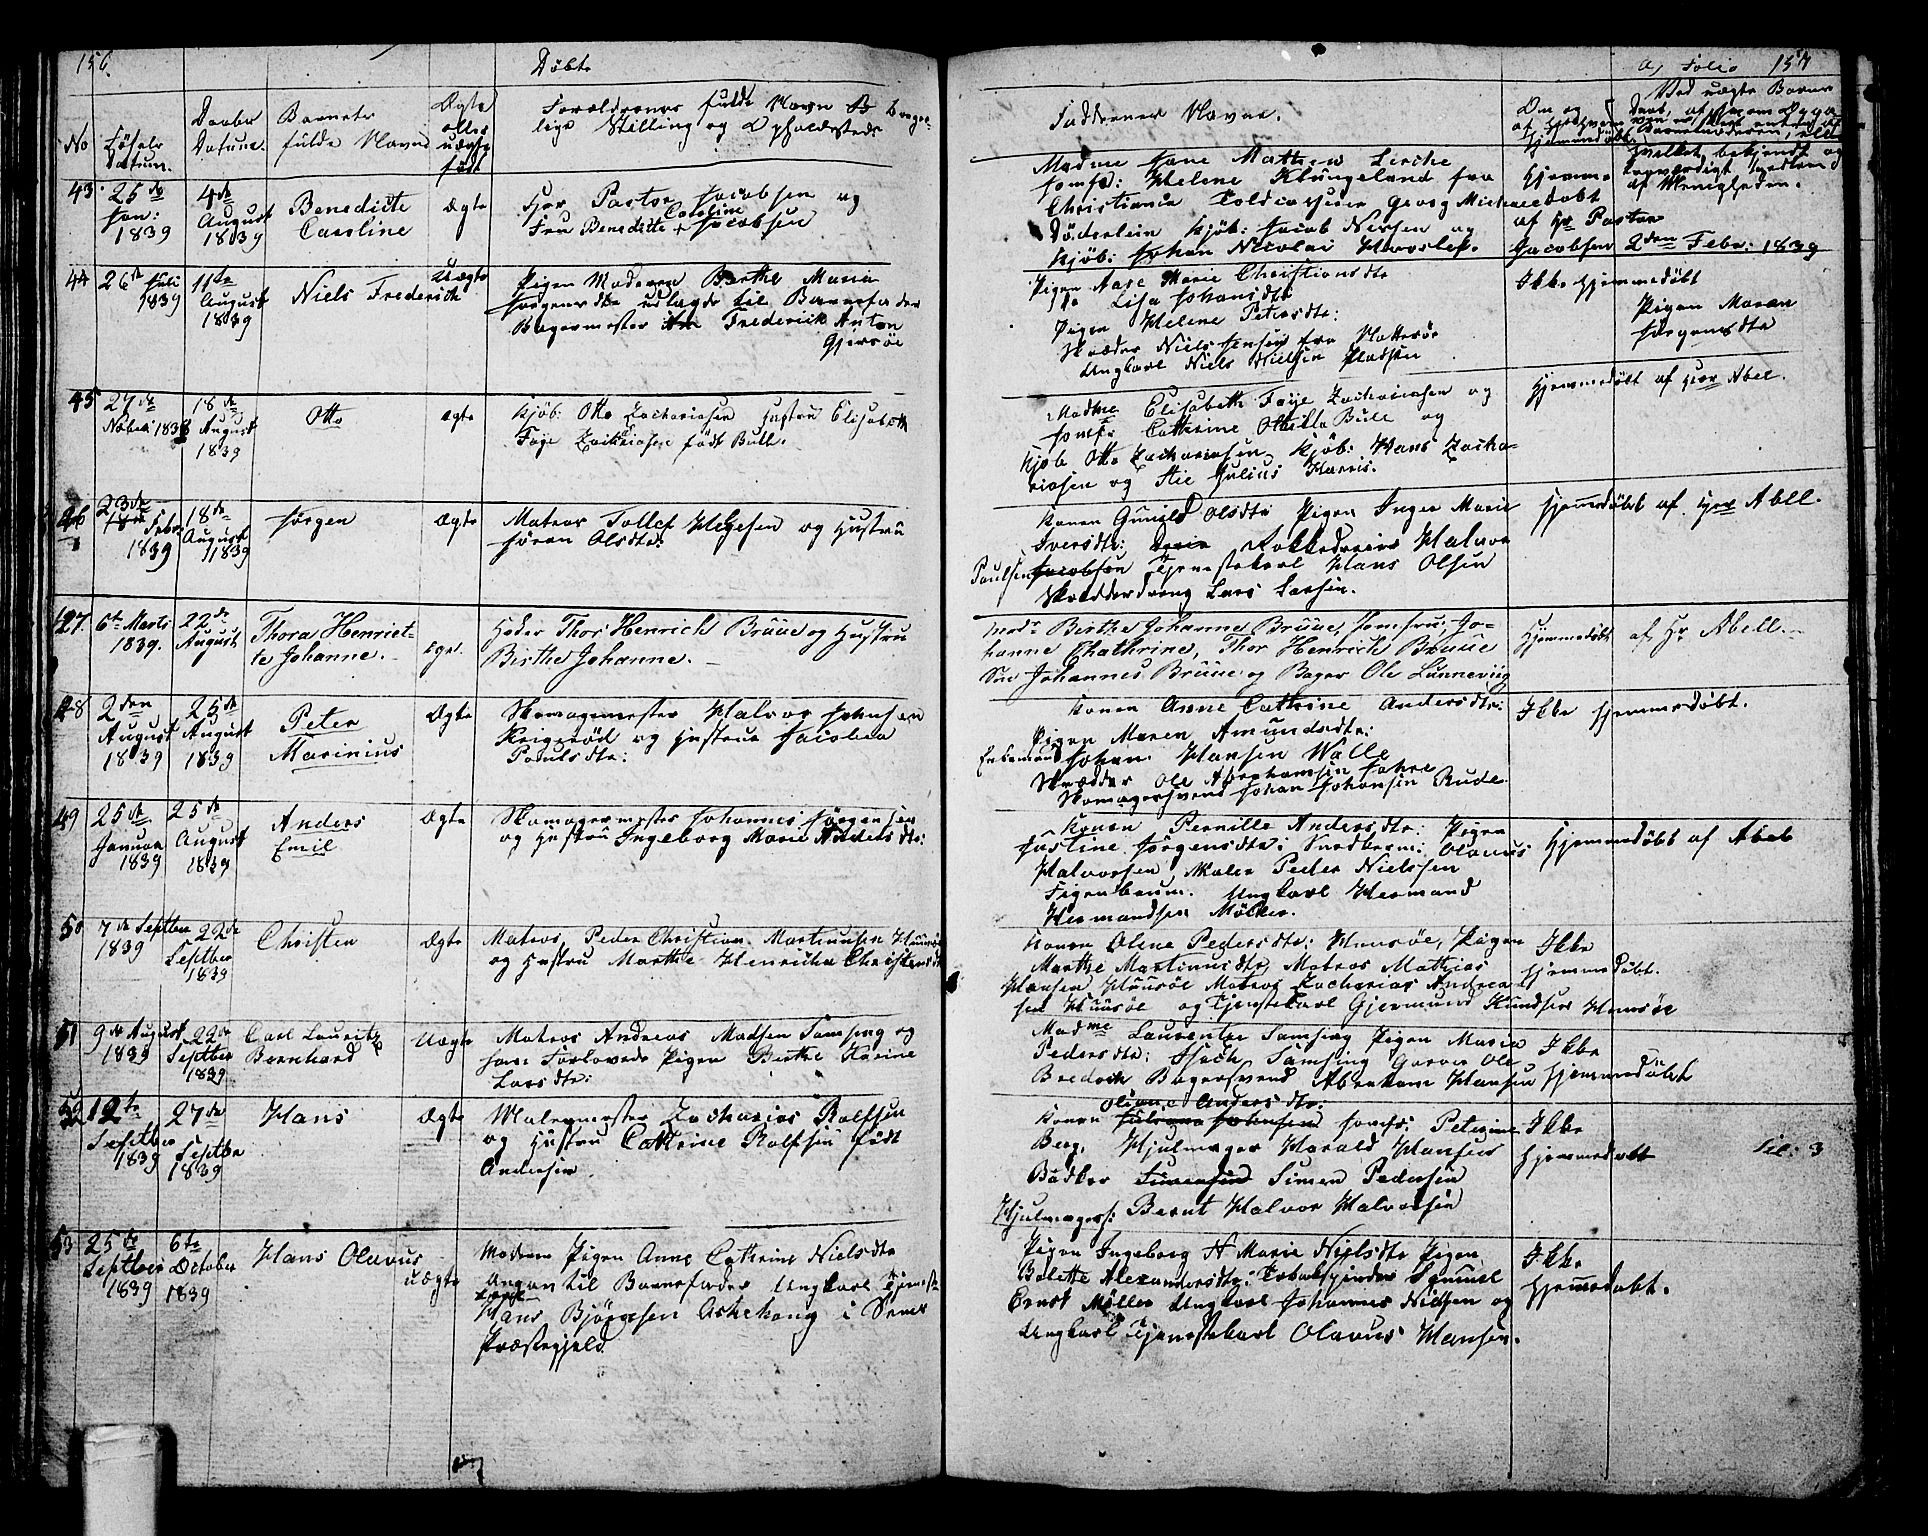 156.
Döbte
No
Födsels
Datum.
Daabs
Datum.
Barnets
fulde Navn
Ægte
eller
uægte
født
Forældrenes fulde Navn
lige Stilling og Opholdssteds
43. 25de Jan: 1839
4de August 1839
Benedicte
Caroline
Ægte
Herr Pastor Jacobsen og
Fru Benedicte Caroline Jacobsen
44 26de Juli 1839
11te August 1839
Niels Frederich
Uægte
Pigen Moderen Berthe Maria
Jørgensdtr udlagde til Barnefader
Bagermester Frederich Anton
Gjersöe
45 27de Novbr 1838
18de August 1839
Otto
Ægte
Kjöb: Otto Zachariasen Hustru Elisabeth
Faÿe Zachariasen født Bull.
46 23de Febr 1839
18de August 1839
Jörgen
Ægte
Matros Tollef Helgesen og Hustru
Jöran Olsdtr:
47. 6te Marts 1839.
22de August
Thora Henriet-
te Johanne.
Ægte.
Höker Thor Henrich Brüüe og Hustru
Birthe Johanne.
48 2den August 1839
25de August 1839
Peter
Marinius
Ægte
Skomagermester Halvor Johnsen
Krigsröd og Hustru Jacobea
Poulsdtr:
49 25de Januar 1839
25de August 1839
Anders
Emil
Ægte
Skomagermester Johannes Jörgensen
og Hustru Ingeborg Marie Andersdtr:
50 7de Septber 1839
22de Septber 1839
Christen
Ægte
Matros Peder Christian Martinusen
og Hustru Marthe Henricha Christensdtr
51 9de August 1839
22de Septber 1839
Carl Lauritz
Bernhard
Uægte
Matros Andreas Madsen Samsing og
hans Forlovede Pigen Berthe Karine
Larsdtr:
52 12te Septbr 1839
27de Septbr 1839
Hans
Ægte
Malermester Zacharias Rolfsen
og Hustru Cathrine Rolfsen født
Andersen
53 25de Septber 1839
6te October 1839
Hans Olavus
Uægte
Moderen Pigen Anne Cathrine Nielsdtr
Angav til Barnefader Ungkarl Tjeneste-
karl
Hans Björnsen Askehoug i Sems
Præstegjeld
a) Folio 157
Faddernes Navne.
Om og
af hvem
hjemmedöbt.
Ved uægte Börn
Madme Hane Mathea Lerche
Jomf: Helene Klüngeland fra
Christiania Toldcasserer Georg Michael
Döderlein Kjöb: Jacob Nielsen og
Kjöb: Johan Nicolai Havslef.
Hjemme-
döbt
af Hr Pastor
Jacobsen 2den Febr: 1839
Pigen Aase Marie Christiansdtr
do Lisa Johansdtr
Pigen Helene Petersdtr:
Skræder Niels Jensen fra Natteröe
Ungkarl Niels Nielsen Madsen
Ikke Hjemmedöbt
Pigen Maren
Jörgensdtr
Madme Elisabeth Faÿe Zachariasen og
Jomfr: Cathrine Othilla Bull og
Kjöb Otto Zachariasen, Kjöb: Hans Zacha-
riasen og Julius Harris.
Hjemmedöbt af Herr Abel.
Konen Gunild Olsdtr Pigen Inger Marie
Iversdtr: Halvor
Paulsen Jacobsen Tjenestekarl Hans Olsen
Skrædderdreng Lars Larsen.
Hjemmedöbt af Herr Abell.
Madr Birthe Johanne Brüüe, Jomfru, Jo-
hanne Chathrine, Thor Henrich Brüüe
Johannes Brüüe og Bager Ole Lunneviig
Hjemmedöbt af Hr Abell.
Konen Anne Cathrine Andersdtr:
Pigen Maren Amundsdtr:
Enkemand Johan Hansen Walle
Skrædder Ole Abrahamsen Fahre
Skomagersvend Johan Johansen Rude
Ikke Hjemmedöbt.
Konen Pernille Andersdtr: Pigen
Justine Jörgensdtr: Snedkerm: Olavus
Halvorsen Maler Peder Nielsen
Figenbaum. Ungkarl Hermand
Hermandsen Möller.
Hjemmedöbt af Abel
Konen Olene Pedersdtr: Huusöe, Pigen
Marthe Martinusdtr, Matros Mathias
Hansen Huusöe Matros Zacharias Andrea-
sen Huusöe og Tjenestekarl Gjermund Knudsen Huusöe
Ikke
Hjemmedöbt.
Madme Laurentze Samsing Pigen Maria
Pedersdtr: Isach Samsing Garver Ole
Bredoch Bagersvend Abraham Hansen
Ikke
Hjemmedöbt
Oliane Andersdtr:
Konen Johanne Johansen Jomf: Petrine
Berg, Hjulmager Harald Hansen
Bödker Simen Pedersen
Hjulmagers: Bernt Halvor Halvorsen
Ikke
Hjemmedöbt
til: 3
Pigen Ingeborg N Marie Nielsdtr Pigen
Bolette Alexandersdtr: Tobakspinder Samuel
Ernst Möller Ungkarl Johannes Nielsen og
Ungkarl Tjenestekarl Olavus Hansen.
Ikke
Hjemmedöbt.